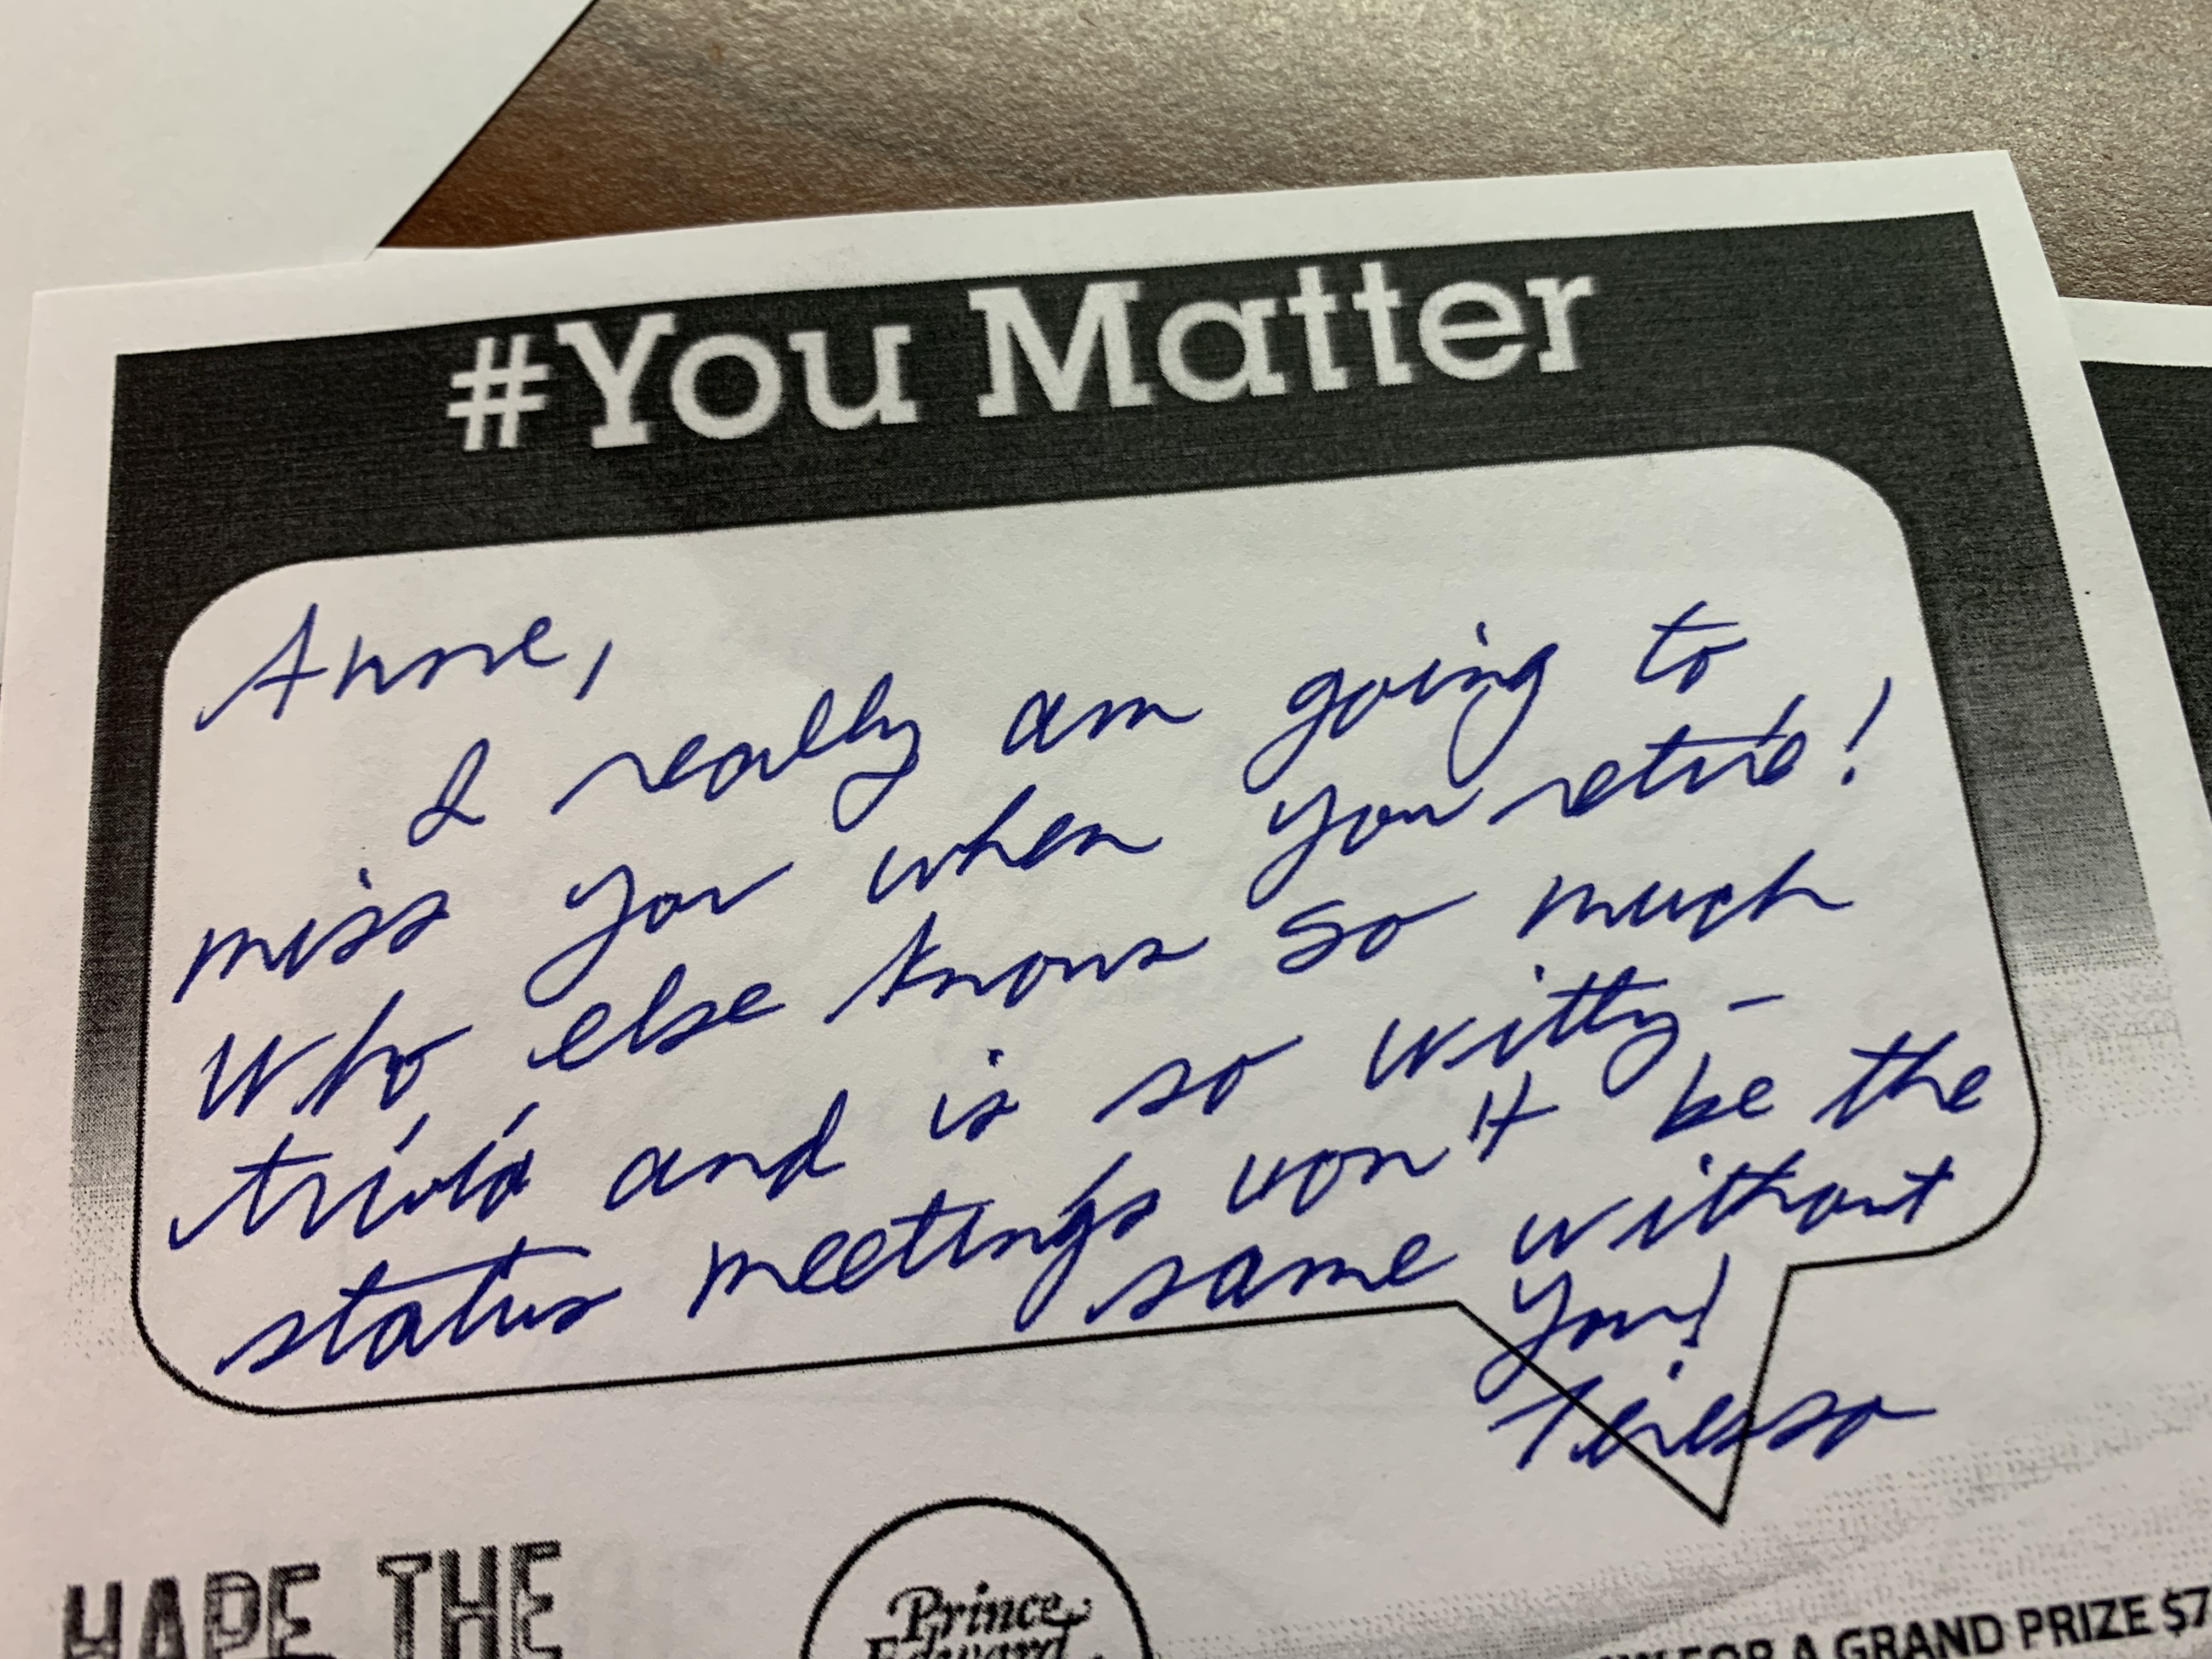 #You Matter
Anne,
I really am going to
miss you when you retire!
Who else knows so much
trivia and is so witty –
status meetings won't be the
same without
you!
Teresa
HAPE THE
Prince
Edward
FOR A GRAND PRIZE $7